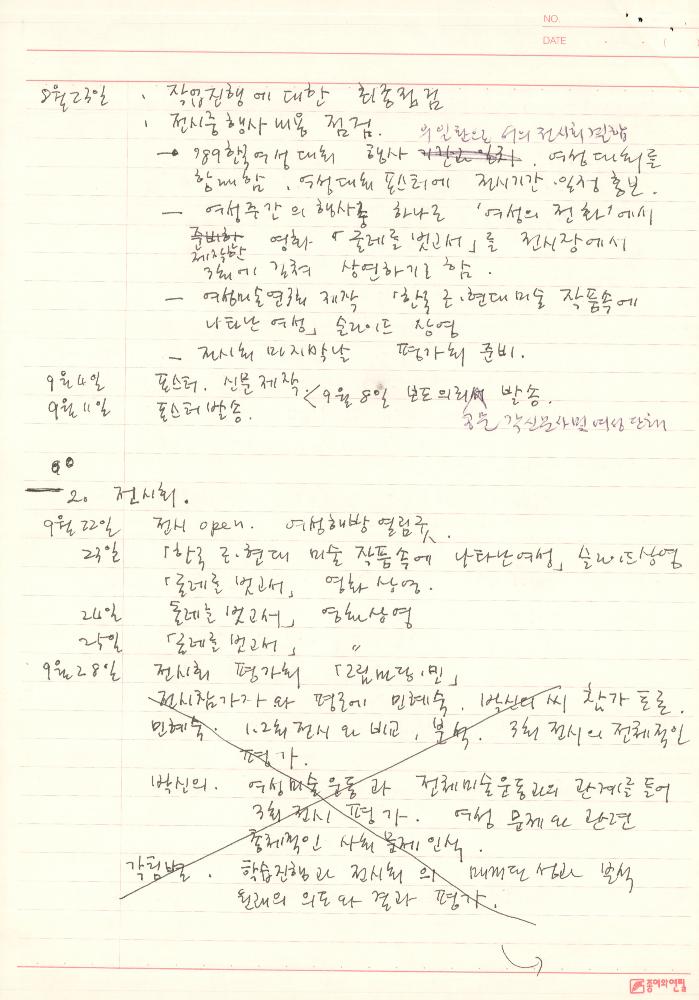 NO.
DATE
8월23일 . 작업진행에 대한 최종점검
. 전시중행사 내용 점검.
의 일환으로 여의 전시회 결합
→ '89한국여성대회 행사 기간과 일정, 여성대회를
함께함. 여성대회 포스터에 전시기간·일정 홍보.
— 여성주간의 행사중 하나로 '여성의 전화'에서
준비한 영화 「굴레를 벗고서」를 전시장에서
제작한
3회에 걸쳐 상연하기로 함.
— 여성미술연구회 제작 「한국 근·현대미술 작품속에
나타난 여성」 슬라이드 상영
— 전시회 마지막날 평가회 준비.
9월4일 포스터. 신문제작 < 9월 8일 보도의뢰 발송.
9월11일 포스터발송. 공문 각신문사및 여성단체
2. 전시회.
9월22일 전시 open. 여성해방 열림굿.
23일 「한국 근·현대 미술 작품속에 나타난여성」 슬라이드상영
「굴레를 벗고서」 영화 상영.
24일 굴레를 벗고서」 영화상영
25일 「굴레를 벗고서」 〃
9월28일 전시회 평가회 「그림마당·민」
전시참가자와 평론에 민혜숙, 박신의 씨 참가 토론.
민혜숙. 1.2회 전시와 비교, 분석. 3회 전시의 전체적인
평가.
박신의. 여성미술운동과 전체미술운동과의 관계를 들어
3회 전시 평가. 여성 문제와 관련
총체적인 사회문제 인식.
각팀별. 학습진행과 전시회의 성과 분석
원래의 의도와 결과 평가.
종이와연필